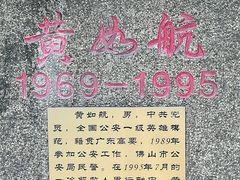 黄如航
1969-1995
黄如航，男，中共党
员，全国公安一级英雄模
范，籍贯广东高要，1989年
参加公安工作，佛山市公
安局民警。在1995年7月的